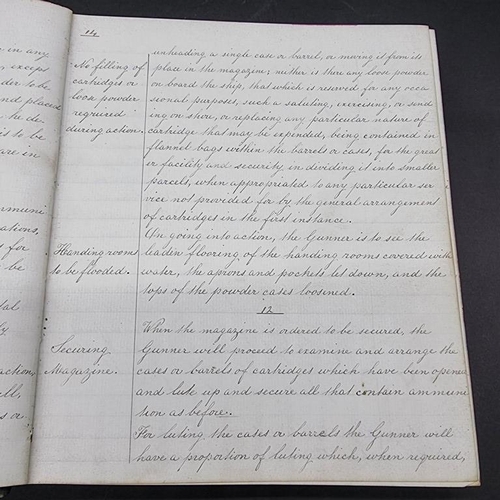 114
unheading a single case or barrel, or moving it from its
No filling of
place in the magazine; neither is there any loose powder
cartridges or
on board the ship, that which is reserved for any occa
loose powder
sional purposes, such a saluting, exercising, or send
required
ing on shore, or replacing any particular nature of
during action.
cartridge that may be expended, being contained in
flannel bags within the barrels or cases, for the great
er facility and security in dividing it into smaller
parcels, when appropriated to any particular ser
vice not provided for by the general arrangement
of cartridges in the first instance.
On going into action, the Gunner is to see the
Handing rooms
leaden flooring of the handing rooms covered with
to be flooded.
water, the aprons and pockets let down, and the
tops of the powder cases loosined.
12
When the magazine is ordered to be secured, the
Securing
Gunner will proceed to examine and arrange the
Magazine.
cases or barrels of cartridges which have been opened
and lute up and secure all that contain ammuni
tion as before.
For luting, the cases or barrels the Gunner will
have a proportion of luting which, when required,
in any
except
to be
nd placed
he de
is to be
are in
mmuni
ations,
for
be
tal
action,
ll,
s or